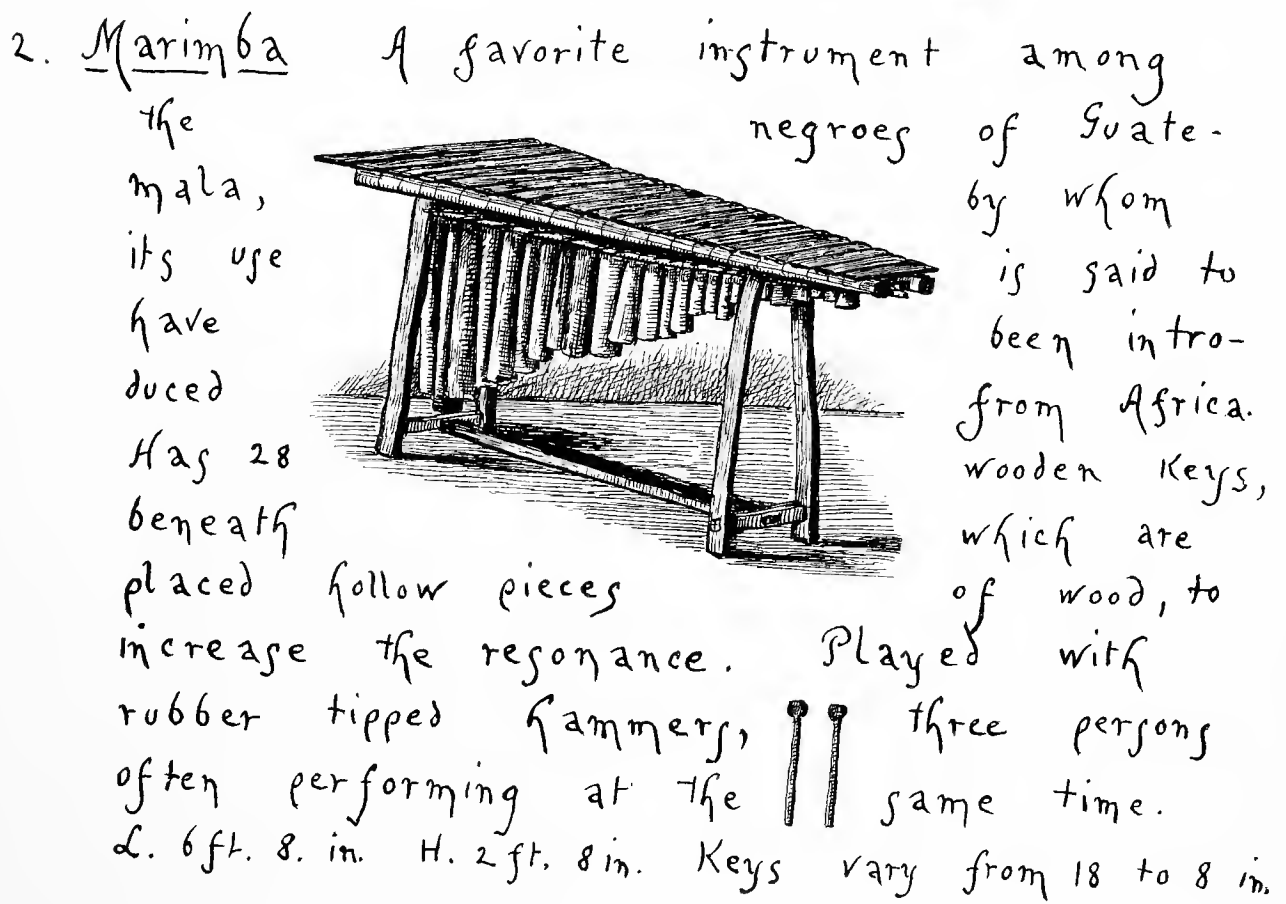 2. Marimba A favorite instrument among
the negroes of Guate-
mala, by whom
its use is said to
have been intro-
duced from Africa.
Has 28 wooden Keys,
beneath which are
placed hollow pieces of wood, to
increase the resonance. Played with
rubber tipped hammers, three persons
often performing at the same time.
L. 6 ft. 8. in. H. 2 ft. 8 in. Keys vary from 18 to 8 in.